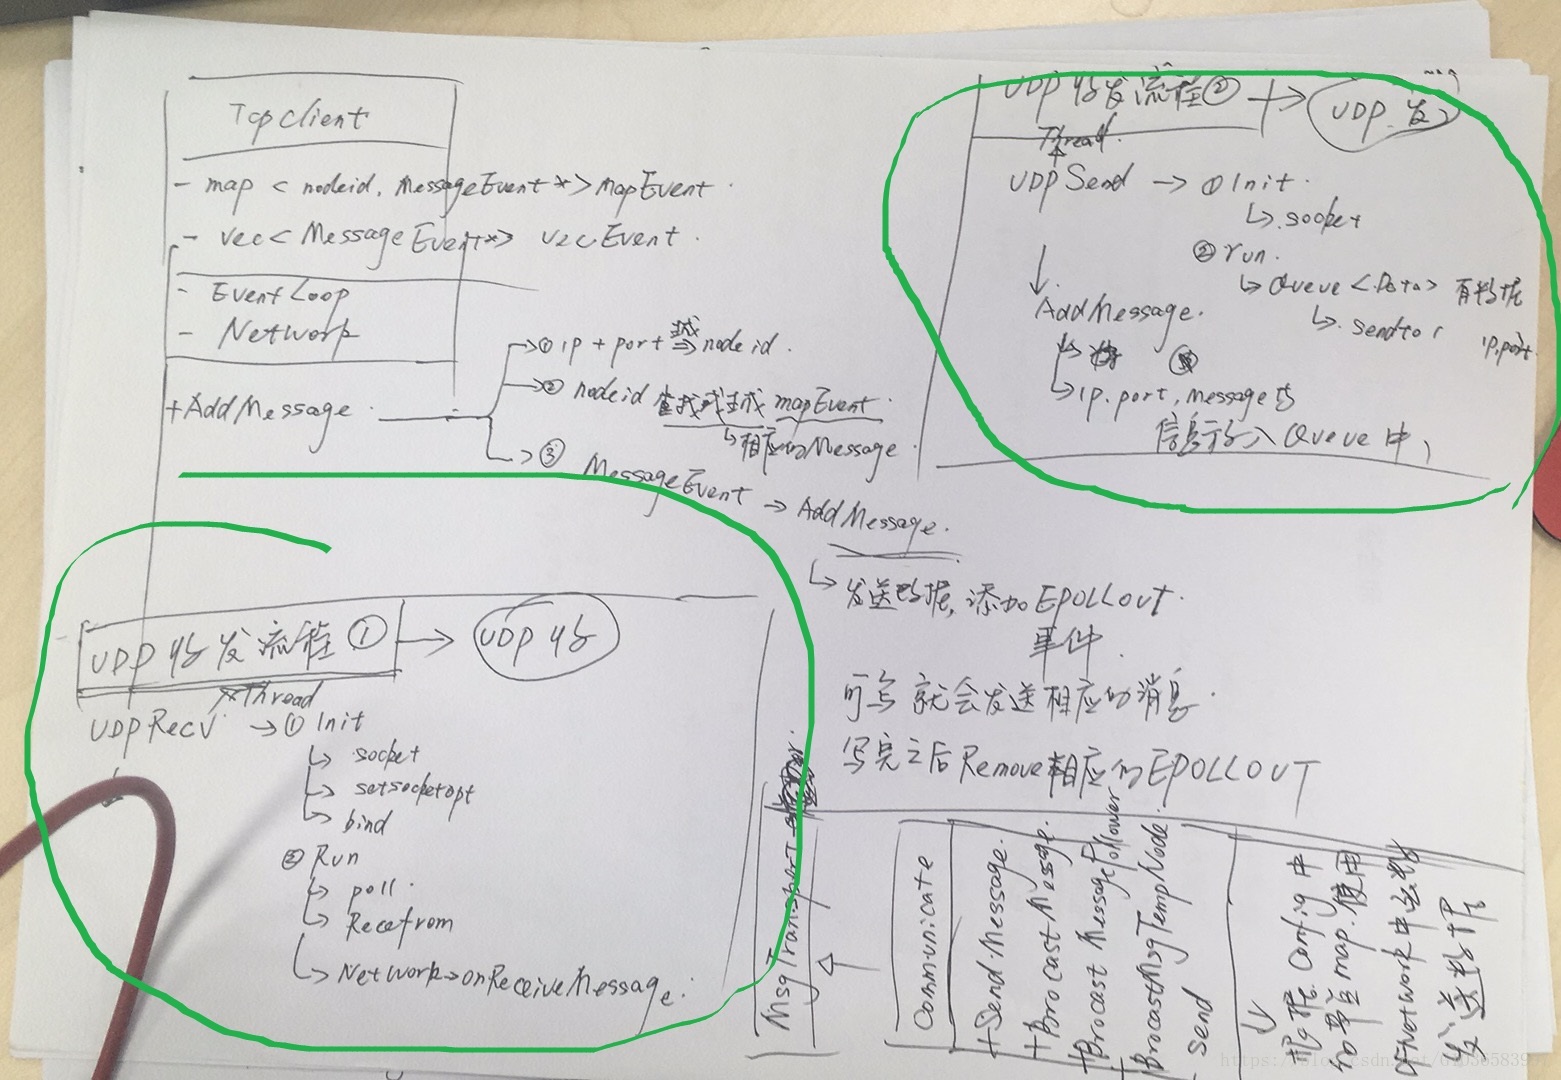 TcpClient
- map < nodeid, MessageEvent *> MapEvent.
- vec< MessageEvent*> vecEvent.
- EventLoop
- Network
+AddMessage.
→① ip + port ⇒ nodeid.
→② nodeid 查找或生成 mapEvent.
↳相应的Message
→③ MessageEvent → AddMessage.
↳发送数据,添加EPOLLOUT.
事件.
可写就会发送相应的消息.
写完之后Remove相应的EPOLLOUT
UDP收发流程② → UDP 发
Thread.
UDPSend → ①Init.
↳.socket
②run.
↳Queue <Data> 有数据
↳. sendto(
ip,port.
AddMessage.
↳ip.port,message的
信息放入Queue中,
UDP收发流程① → UDP收
Thread
UDPRecv → ①Init
↳ socket
↳ setsocketopt
↳ bind
②Run
↳ poll.
↳ Recefrom
↳Network→onReceiveMessage.
MsgTransport
Communicate
+SendMessage.
+BrocastMessage.
+Brocast MessageFollower
+BrocastMsgTempNode.
- send
根据 Config 中
map.使用
Network中
发送数据
https://blog.csdn.net/u010365839